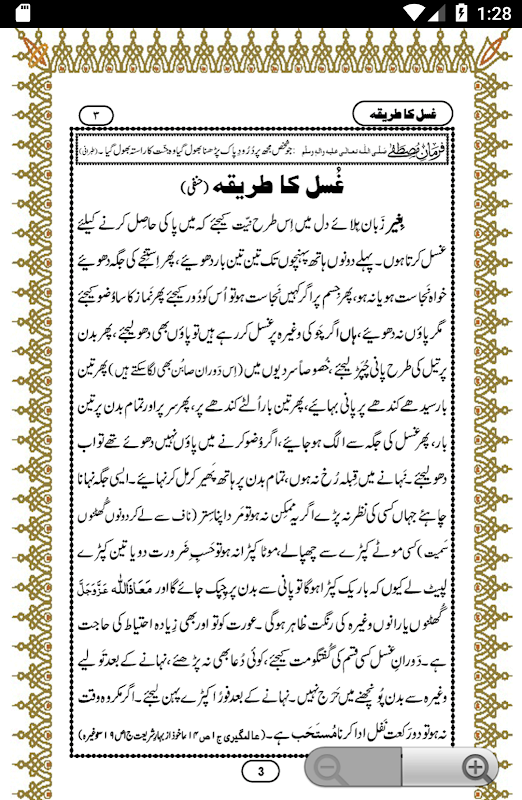 1:28
۳
غسل کا طریقہ
فرمانِ مصطفٰے صلی اللہ تعالٰی علیہ واٰلہٖ وسلم : جو شخص مجھ پر دُرُودِ پاک پڑھنا بھول گیا وہ جنّت کا راستہ بھول گیا۔ (طبرانی)
غُسل کا طریقہ (حنفی)
بِغیر زَبان ہِلائے دل میں اِس طرح نیّت کیجئے کہ میں پاکی حاصِل کرنے کیلئے
غسل کرتا ہوں۔ پہلے دونوں ہاتھ پہنچوں تک تین تین بار دھوئیے، پھر اِستنجے کی جگہ دھوئیے
خواہ نَجاست ہو یا نہ ہو، پھر جِسم پر اگر کہیں نَجاست ہو تو اُس کو دُور کیجئے پھر نَماز کا سا وُضو کیجئے
مگر پاؤں نہ دھوئیے، ہاں اگر چَوکی وغیرہ پر غسل کر رہے ہیں تو پاؤں بھی دھو لیجئے، پھر بدن
پر تیل کی طرح پانی چُپَڑ لیجئے، خُصُوصاً سردیوں میں (اِس دَوران صابُن بھی لگا سکتے ہیں) پھر تین
بار سیدھے کندھے پر پانی بہائیے، پھر تین بار اُلٹے کندھے پر، پھر سر پر اور تمام بدن پر تین
بار، پھر غسل کی جگہ سے الگ ہو جائیے، اگر وُضو کرنے میں پاؤں نہیں دھوئے تھے تو اب
دھو لیجئے۔ نَہانے میں قِبلہ رُخ نہ ہوں، تمام بدن پر ہاتھ پھیر کر مَل کر نہائیے۔ ایسی جگہ نہانا
چاہئے جہاں کسی کی نظر نہ پڑے اگر یہ ممکِن نہ ہو تو مَرد اپنا سِتر (ناف سے لے کر دونوں گُھٹنوں
سَمیت) کسی موٹے کپڑے سے چُھپا لے، موٹا کپڑا نہ ہو تو حَسبِ ضَرورت دو یا تین کپڑے
لپیٹ لے کیوں کہ باریک کپڑا ہو گا تو پانی سے بدن پر چِپک جائے گا اور مَعَاذَاللّٰہ عَزَّوَجَلَّ
گُھٹنوں یا رانوں وغیرہ کی رنگت ظاہِر ہو گی۔ عورت کو تو اور بھی زِیادہ احتیاط کی حاجت
ہے۔ دَورانِ غسل کسی قسم کی گُفتگو مت کیجئے، کوئی دُعا بھی نہ پڑھئے، نہانے کے بعد تَولیے
وغیرہ سے بدن پُونچھنے میں حَرَج نہیں۔ نہانے کے بعد فورًا کپڑے پہن لیجئے۔ اگر مکروہ وقت
نہ ہو تو دو رَکعت نَفل ادا کرنا مُستَحَب ہے۔ (عالمگیری ج۱ ص۱۴ ماخوذ از بہارِ شریعت ج۱ ص۳۱۹ وغیرہ)
3